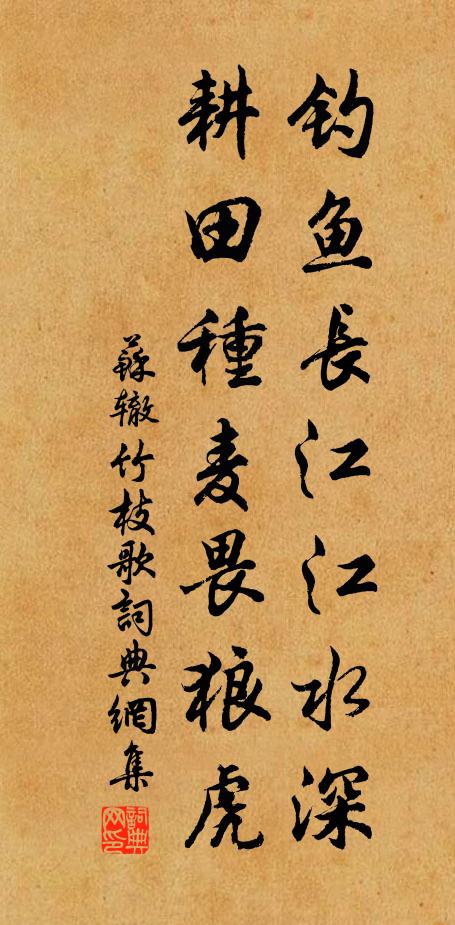 钓鱼長江江水深
耕田種麦畏狼虎
蘇辙竹枝歌詞典網集
詞典網印